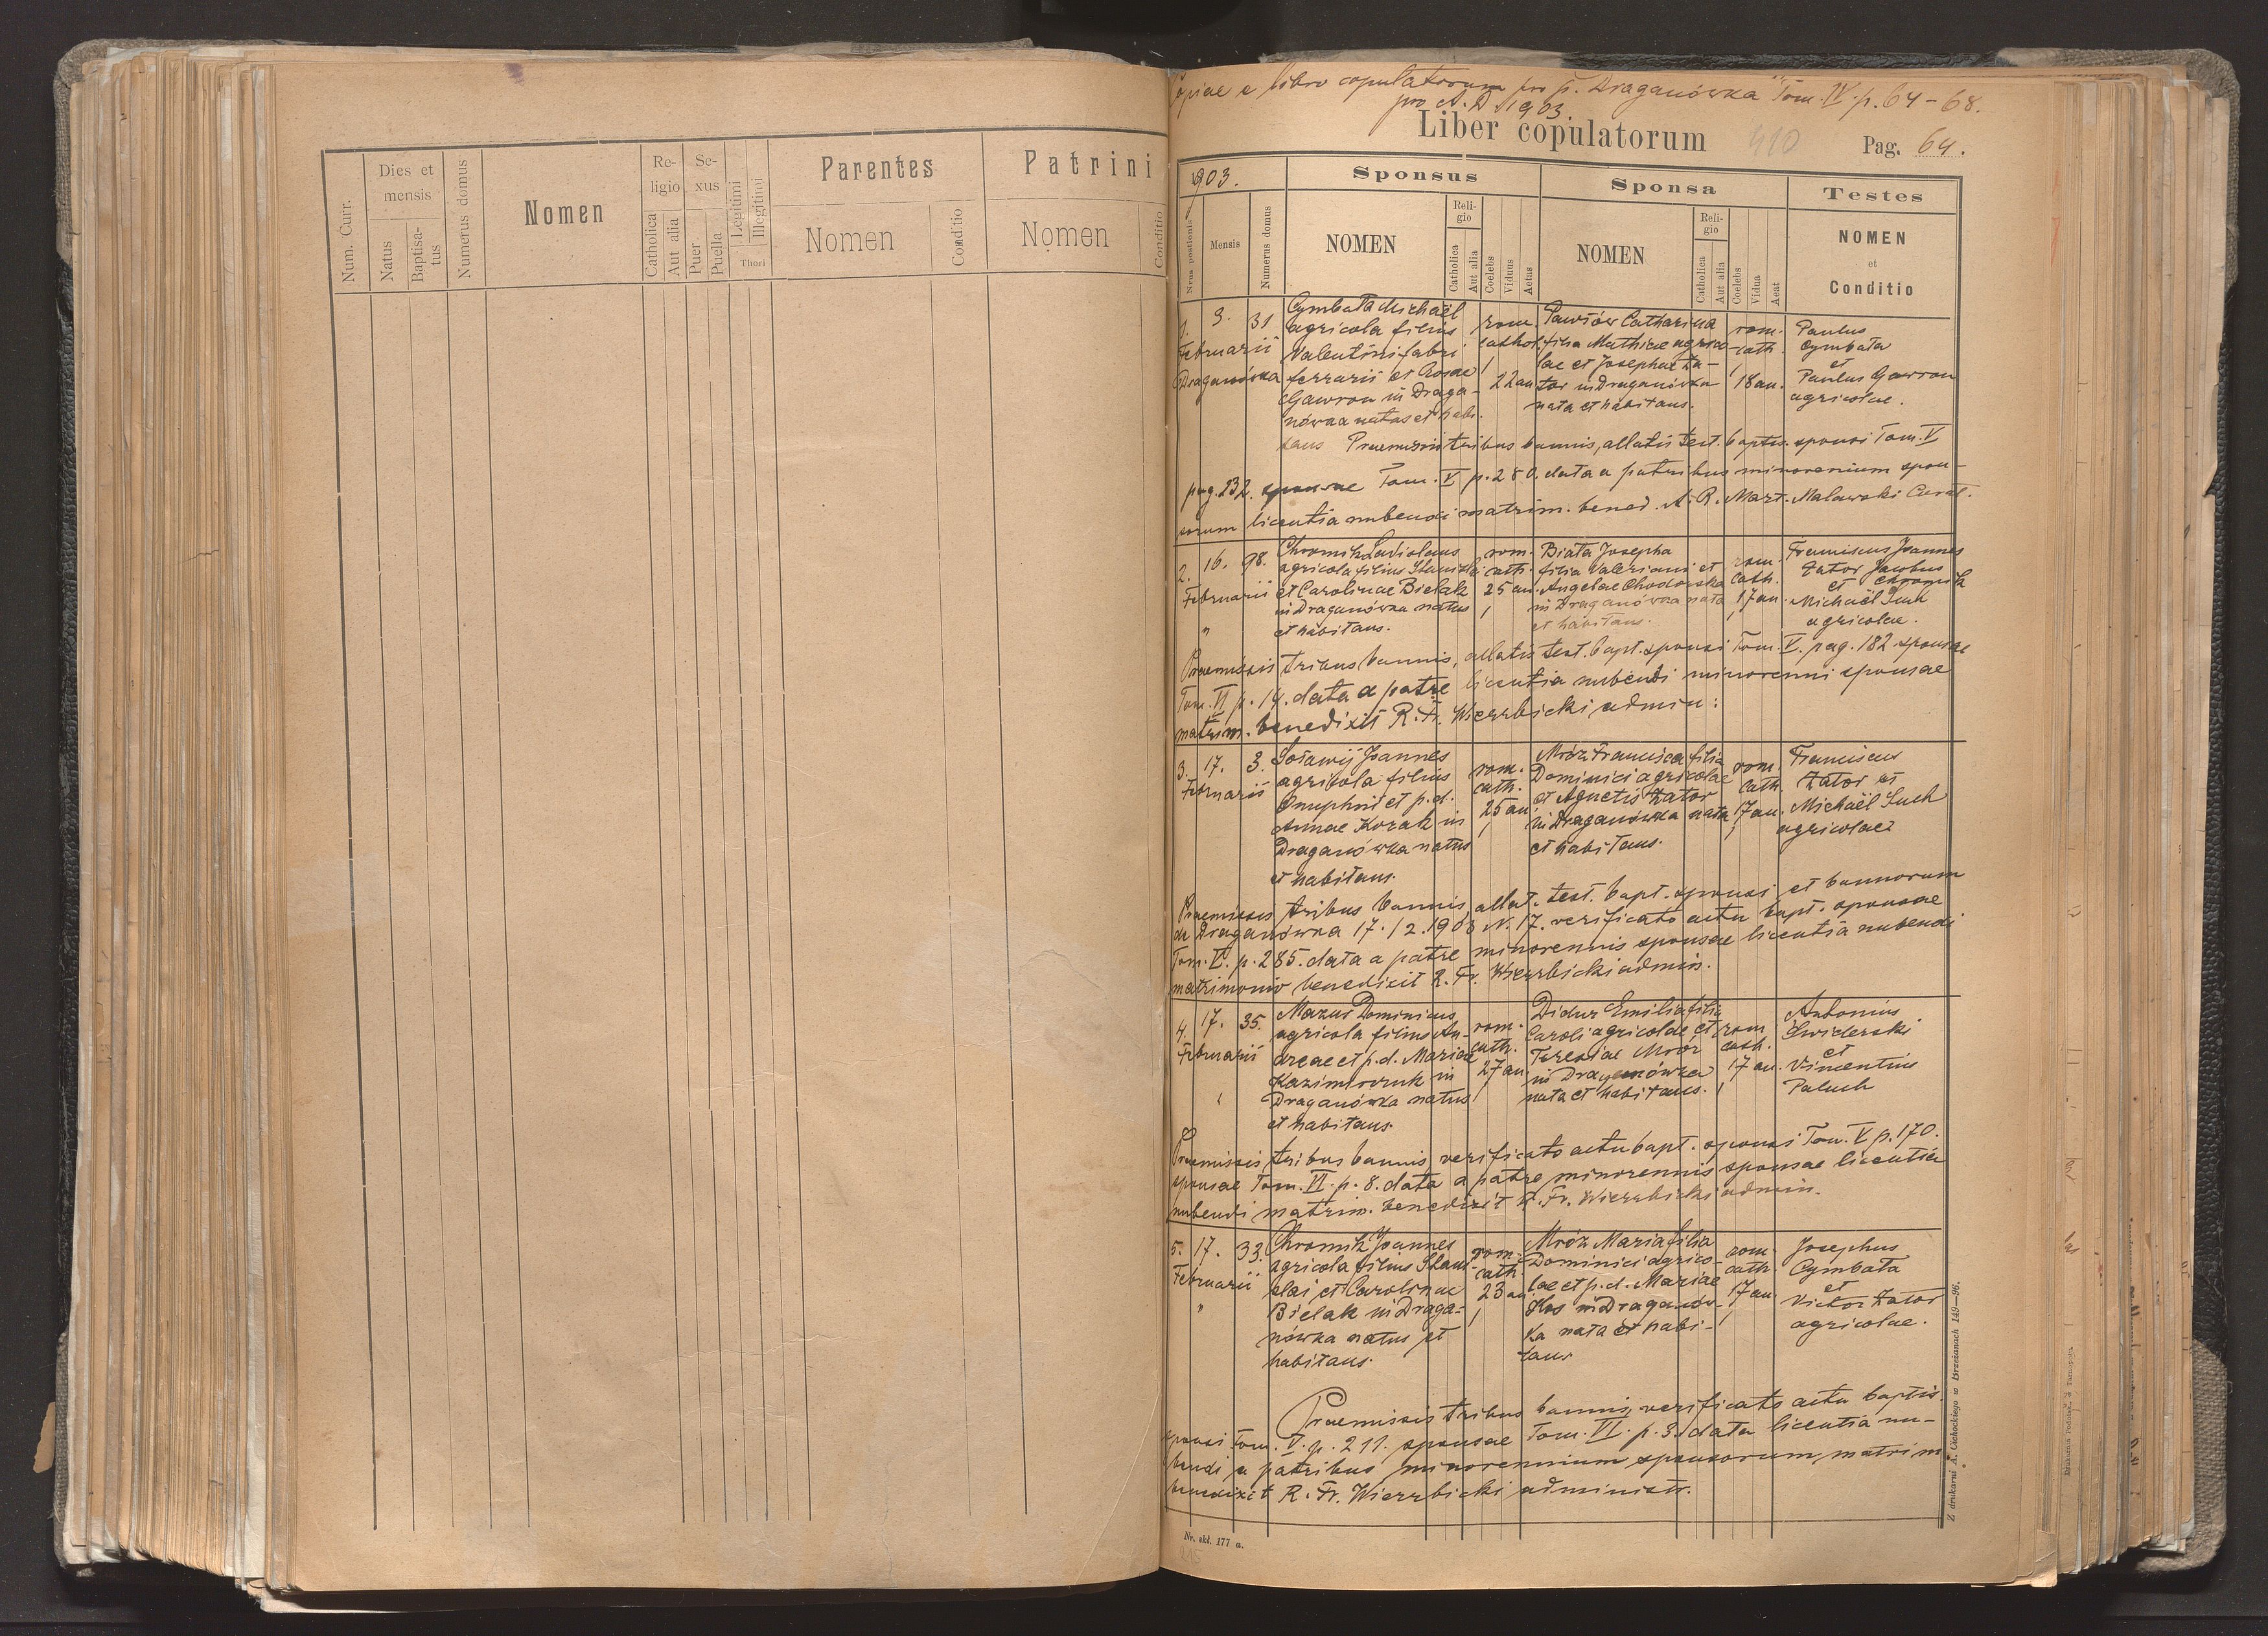 Num. Curr.
Dies et mensis
Natus
Baptisa-
tus
Numerus domus
Nomen
Re-
ligio
Catholica
Aut alia
Se-
xus
Puer
Puella
Legitimi
Illegitimi
Thori
Parentes
Nomen
Conditio
Patrini
Nomen
Conditio
Copiae e libro copulatorum pro p. Draganówka Tom. IV. p. 64-68.
pro A. D. 1903.
Liber copulatorum 410 Pag. 64.
1903.
Sponsus
Sponsa
Testes
Nrus positionis
Mensis
Numerus domus
NOMEN
Reli-
gio
Catholica
Aut alia
Coelebs
Viduus
Aetas
NOMEN
Reli-
gio
Catholica
Aut alia
Coelebs
Vidua
Aeat
NOMEN
et
Conditio
1. 3. 31
Februarii
Draganówka
Cymbała Michaël
agricola filius
Valentini fabri
ferrarii et Rosae
Gawron in Draga-
nówka natus et habi-
tans
rom.
cathol.
22 an
Pawłów Catharina
filia Mathiae agrico-
lae et Josephae Za-
tor in Draganówka
nata et habitans.
rom.
cath.
18 an.
Paulus
Cymbała
et
Paulus Gawron
agricolae.
Praemissis tribus bannis, allatis test. baptis. sponsi Tom. V
pag. 232. sponsae Tom. V p. 280. data a patribus minorenium spon-
sorum licentia nubendi matrim. bened. A. R. Mart. Malawski Curat.
2. 16. 98.
Februarii
"
Chromik Ladislaus
agricola filius Stanislai
et Carolinae Bielak
in Draganówka natus
et habitans.
rom.
cath.
25 an.
Biała Josepha
filia Valeriani et
Angelae Chodorska
in Draganówka nata
et habitans.
rom.
cath.
17 an.
Franciscus Joannes
Zator Jacobus
et Chromik
Michaël Such
agricolae.
Praemissis tribus bannis, allatis test. bapt. sponsi Tom. V. pag. 182 sponsae
Tom. VI p. 14. data a patre licentia nubendi minorenni sponsae
matrim. benedixit R. Fr. Wierzbicki admin:
3. 17. 3.
Februarii
Soławij Joannes
agricola filius
Onuphrii et p. d.
Annae Kozak in
Draganówka natus
et habitans.
rom.
cath.
25 an
Mróz Francisca filia
Dominici agricolae
et Agnetis Zator
in Draganówka nata
et habitans.
rom.
cath.
17 an.
Franciscus
Zator et
Michaël Such
agricolae
Praemissis tribus bannis, allat. test. bapt. sponsi et bannorum
de Draganówka 17./2. 1903 N. 17. verificato actu bapt. sponsae
Tom. V. p. 285. data a patre minorennis sponsae licentia nubendi
matrimonio benedixit R. Fr. Wierzbicki admin.
4. 17. 35.
Februarii
"
Mazur Dominicus
agricola filius An-
dreae et p. d. Mariae
Kazimirczuk in
Draganówka natus
et habitans.
rom.
cath.
27 an
Didur Emilia filia
Caroli agricolae et
Teresiae Mróz
in Draganówka
nata et habitans.
rom
cath.
17 an.
Antonius
Świderski
et
Vincentius
Paluch
Praemissis tribus bannis verificato actu bapt. sponsi Tom. V p. 170.
sponsae Tom. VI. p. 8. data a patre minorennis sponsae licentia
nubendi matrim. benedixit R. Fr. Wierzbicki admin.
5. 17. 33.
Februarii
"
Chromik Joannes
agricola filius Stani-
slai et Carolinae
Bielak in Draga-
nówka natus et
habitans.
rom.
cath.
23 an
Mróz Maria filia
Dominici agrico-
lae et p. d. Mariae
Kos in Draganów-
ka nata et habi-
tans
rom.
cath.
17 an
Josephus
Cymbała
et
Victor Zator
agricolae.
Praemissis tribus bannis, verificato actu baptis.
sponsi Tom. V. p. 211. sponsae Tom. VI. p. 3. data licentia nu-
bendi a patribus minorennium sponsorum, matrim.
benedixit R. Fr. Wierzbicki administr.
Nr. skł. 177 a.
Z drukarni A. Cichockiego w Brzeżanach 149—96.